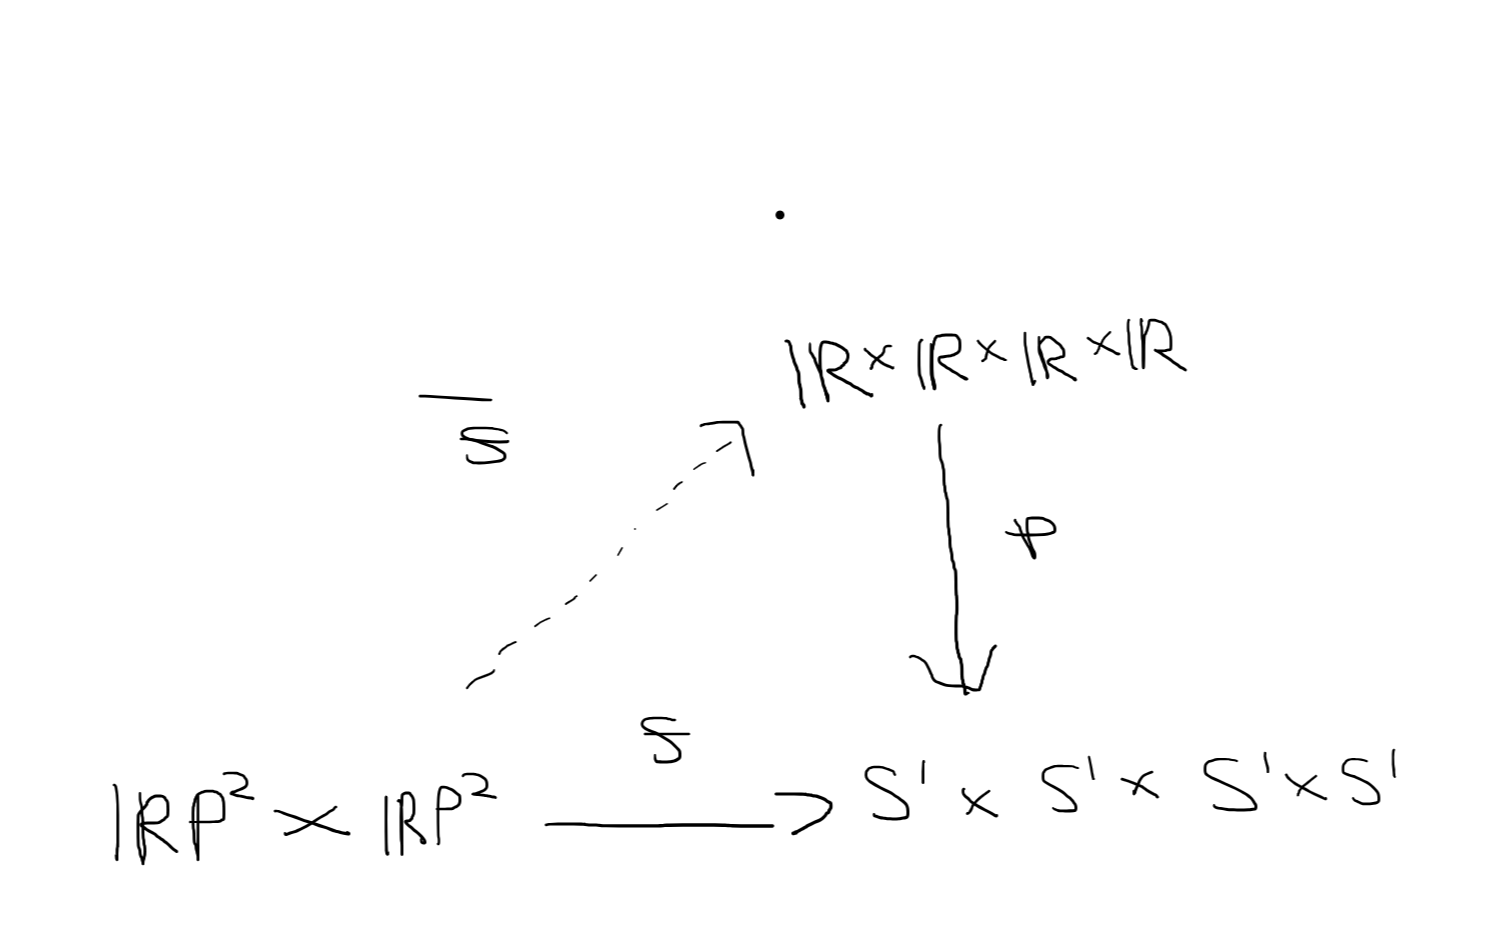 ℝ × ℝ × ℝ × ℝ
f̄
p
f
ℝP² × ℝP² → S¹ × S¹ × S¹ × S¹